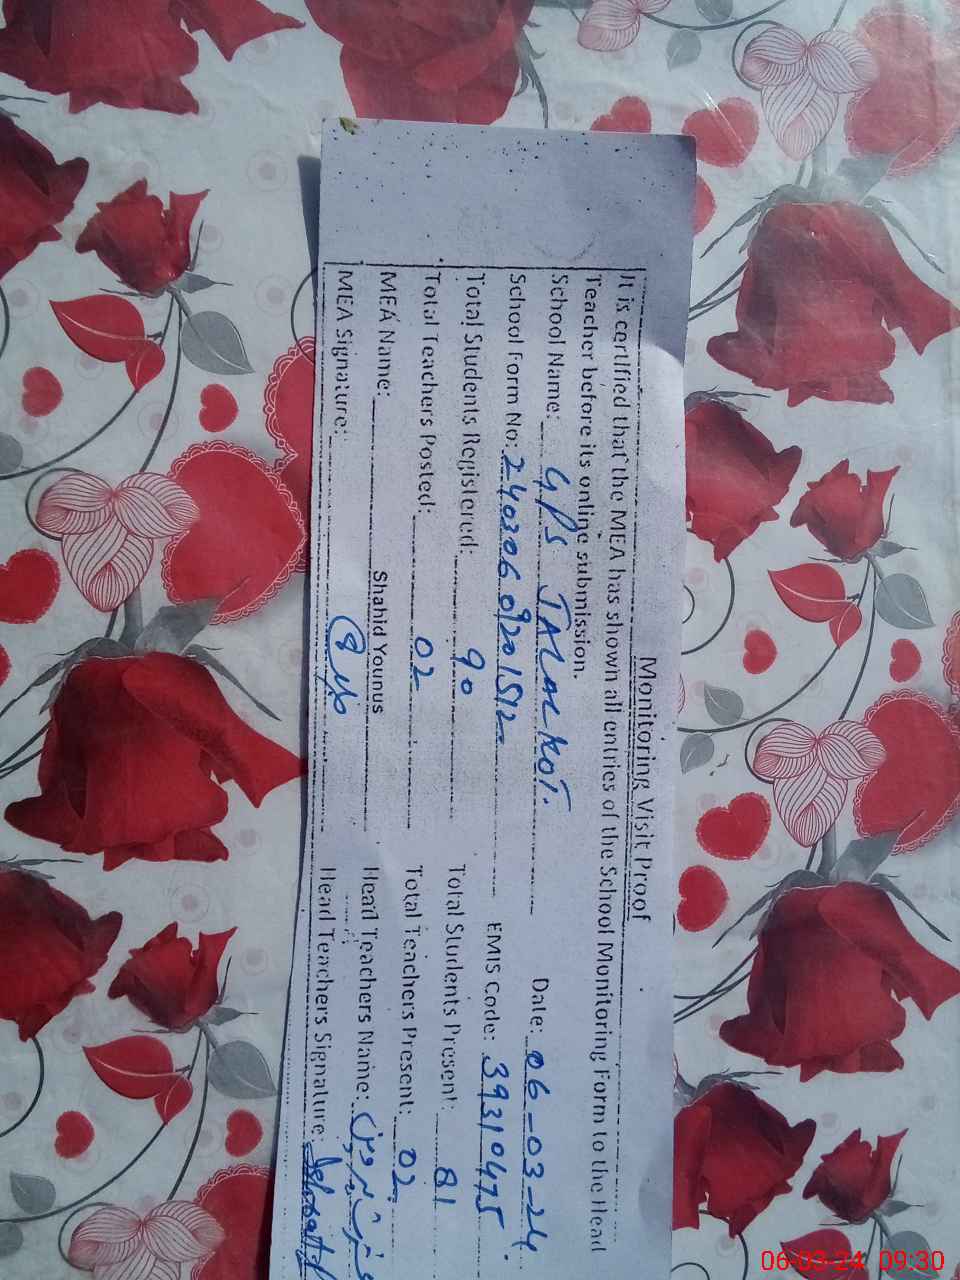 Monitoring Visit Proof
It is certified that the MEA has shown all entries of the School Monitoring Form to the Head
Teacher before its online submission.
School Name: GPS JALAL KOT. Date: 06-03-24.
School Form No: 24030609201512 EMIS Code: 39310475
Total Students Registered: 90 Total Students Present: 81
Total Teachers Posted: 02 Total Teachers Present: 02
MEA Name: Shahid Younus Head Teachers Name:
MEA Signature: Head Teachers Signature:
06-03-24 09:30